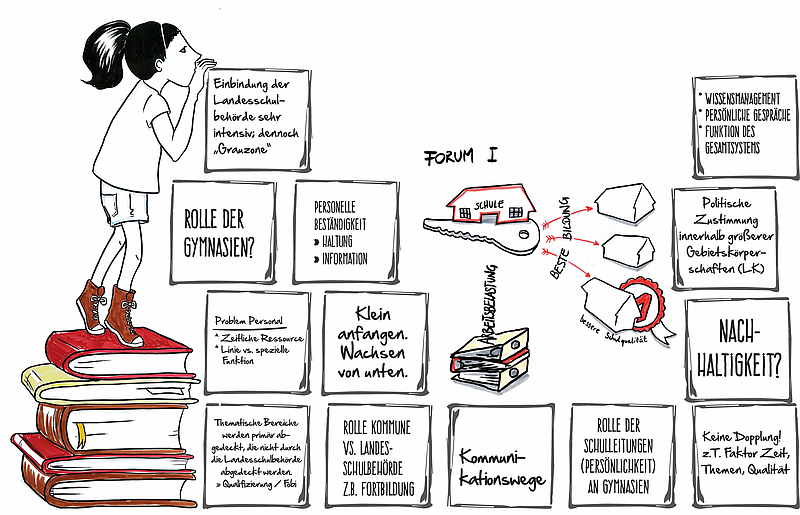 Einbindung der
Landesschul-
behörde sehr
intensiv; dennoch
„Grauzone“
ROLLE DER
GYMNASIEN?
PERSONELLE
BESTÄNDIGKEIT
» HALTUNG
» INFORMATION
Problem Personal
* Zeitliche Ressource
* Linie vs. spezielle
Funktion
Klein
anfangen.
Wachsen
von unten.
Thematische Bereiche
werden primär ab-
gedeckt, die nicht durch
die Landesschulbehörde
abgedeckt werden
» Qualifizierung / Fobi
ROLLE KOMMUNE
VS. LANDES-
SCHULBEHÖRDE
Z.B. FORTBILDUNG
FORUM I
SCHULE
BESTE BILDUNG
1
bessere Schulqualität
ARBEITSBELASTUNG
Kommuni-
kationswege
ROLLE DER
SCHULLEITUNGEN
(PERSÖNLICHKEIT)
AN GYMNASIEN
* WISSENSMANAGEMENT
* PERSÖNLICHE GESPRÄCHE
* FUNKTION DES
GESAMTSYSTEMS
Politische
Zustimmung
innerhalb größerer
Gebietskörper-
schaften (LK)
NACH-
HALTIGKEIT?
Keine Dopplung!
z.T. Faktor Zeit,
Themen, Qualität